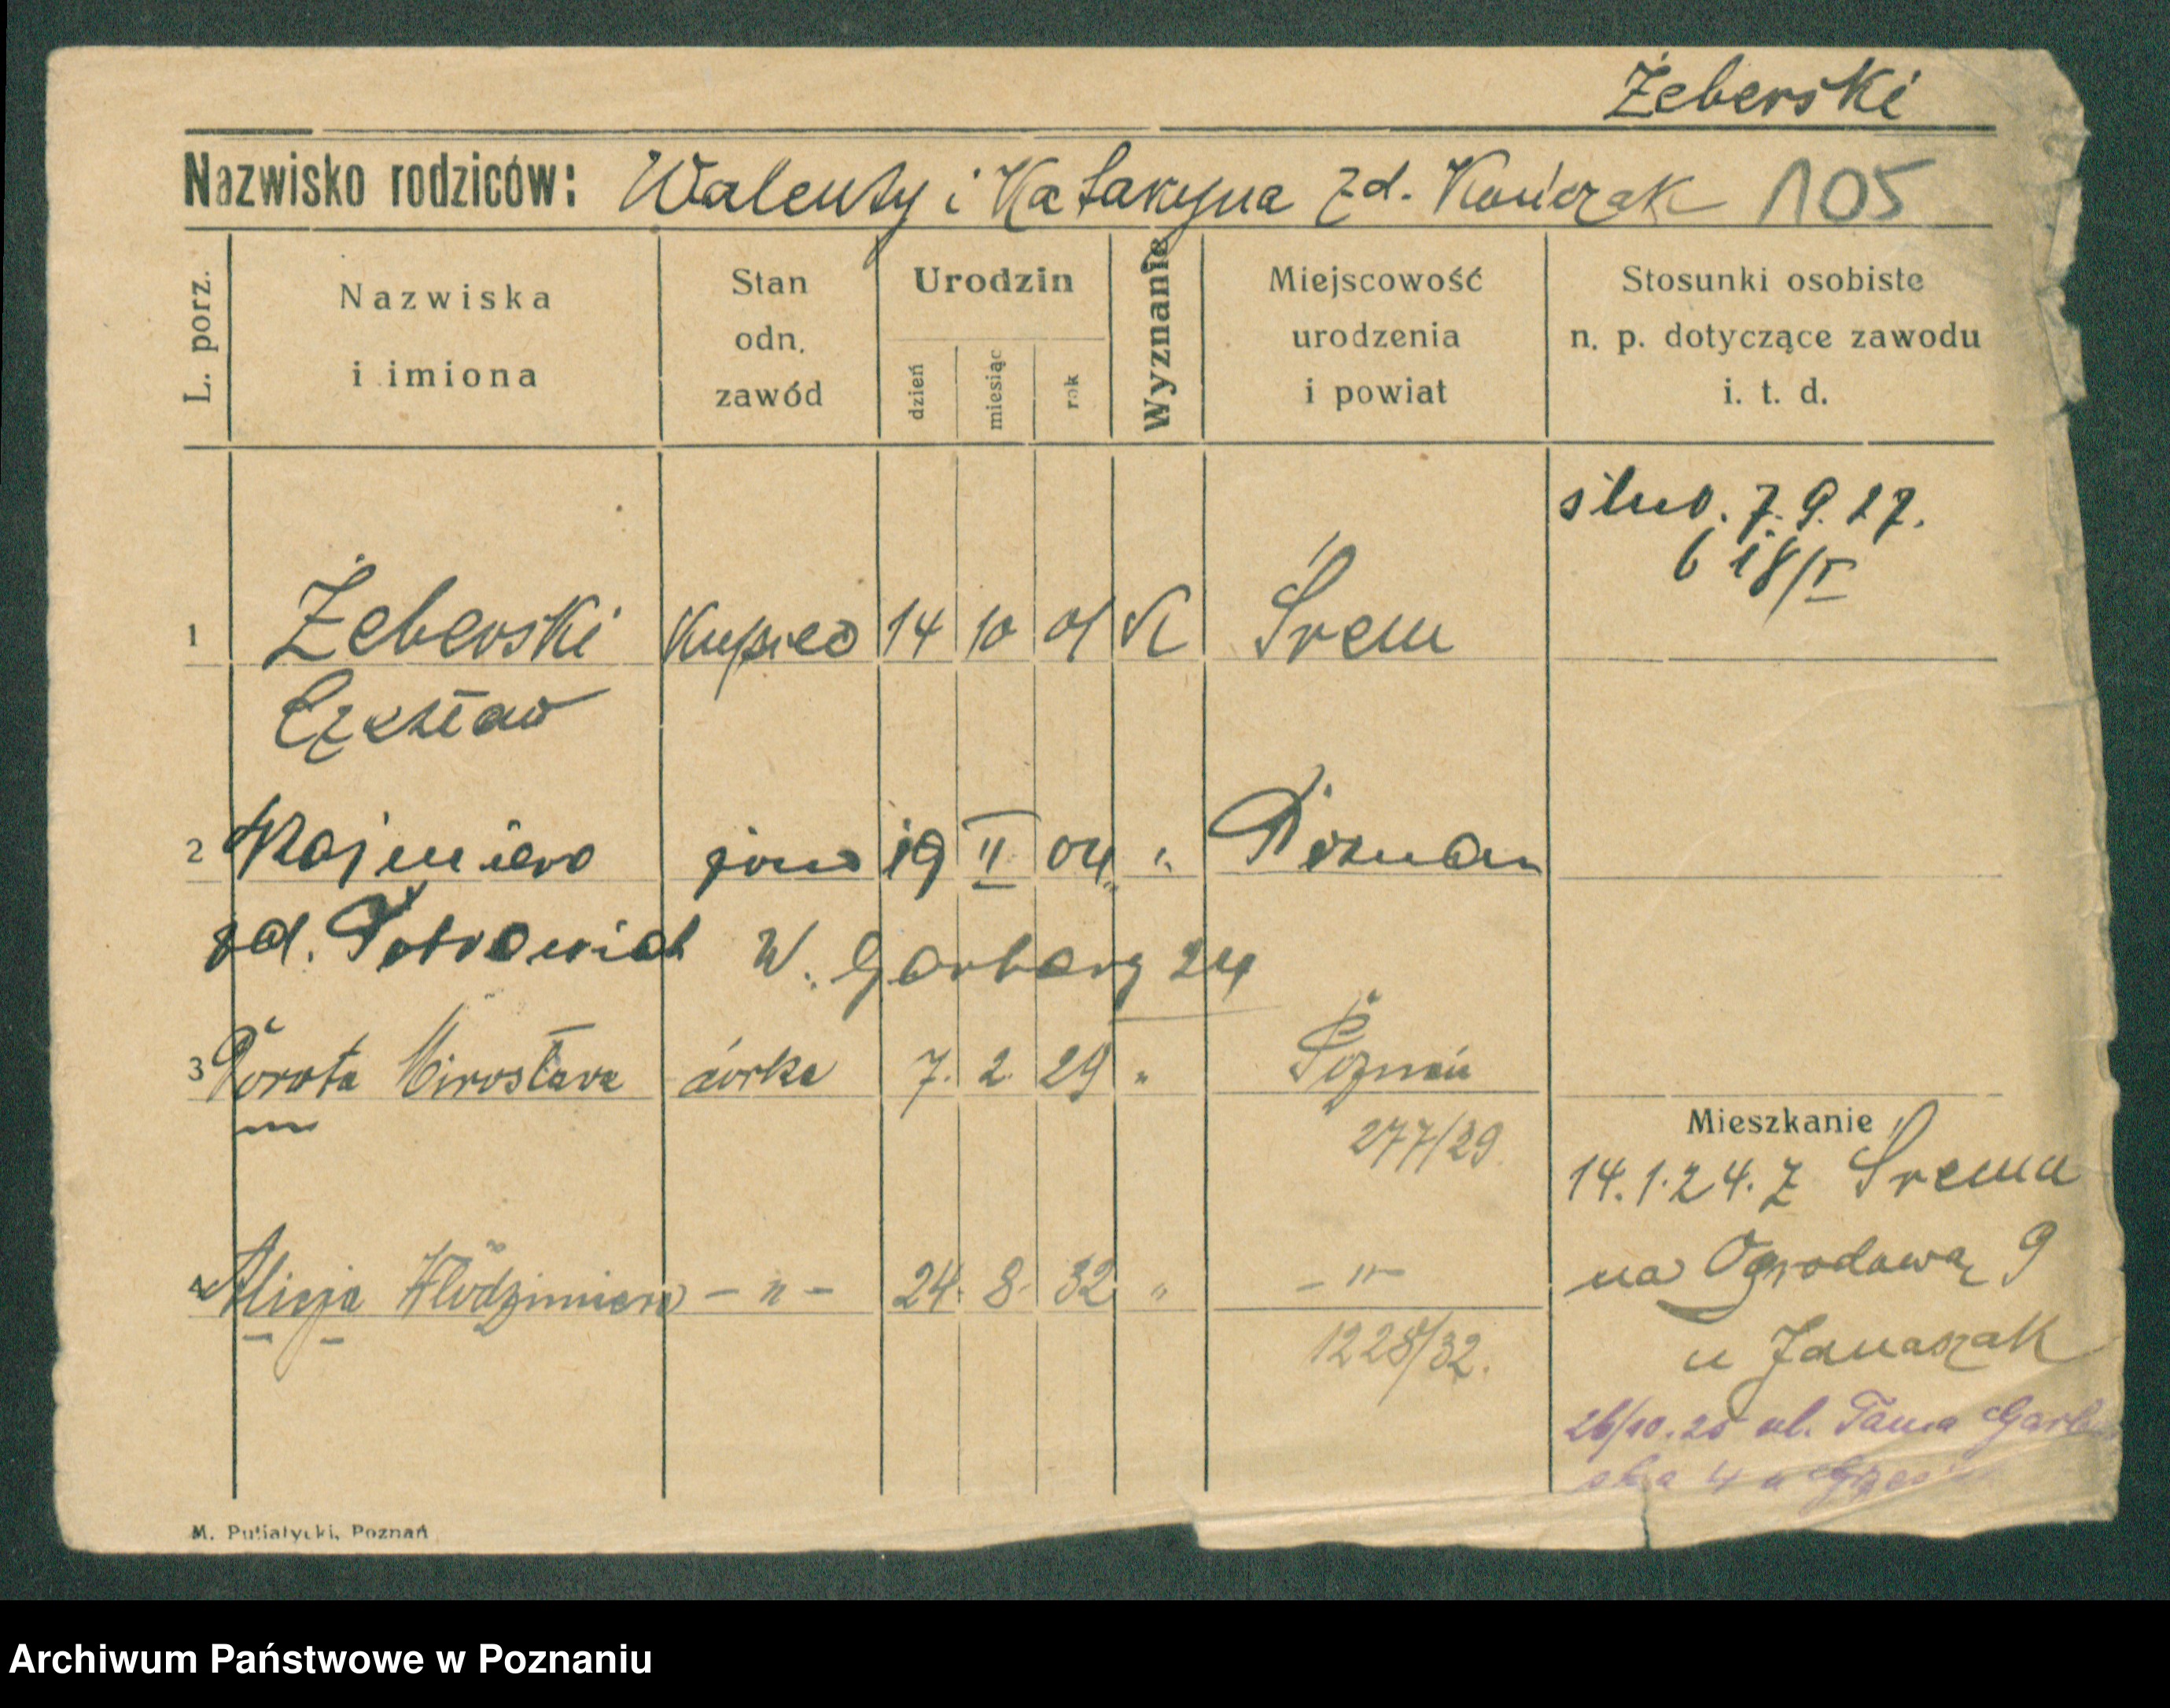 Żeberski
Nazwisko rodziców: Walenty i Katarzyna zd. Kończak 105
L. porz.
Nazwiska
i imiona
Stan
odn.
zawód
Urodzin
dzień
miesiąc
rok
Wyznanie
Miejscowość
urodzenia
i powiat
Stosunki osobiste
n. p. dotyczące zawodu
i. t. d.
ślub. 7.9.27.
1 Żeberski Kupiec 14 10 01 K Śrem
Czesław
2 Kazimiera żona 19 II 04 " Poznan
zd.
W. Garbary 24
3 Dorota Mirosława córka 7. 2. 29 " Poznań
277/29
Mieszkanie
14.1.24. z Śremu
na Ogrodową 9
u Janaszak
4 Alicja Włodzimiera - " - 24. 8. 32 " - " -
1228/32.
26/10.25 ul. Tama
M. Putiatycki, Poznań
Archiwum Państwowe w Poznaniu